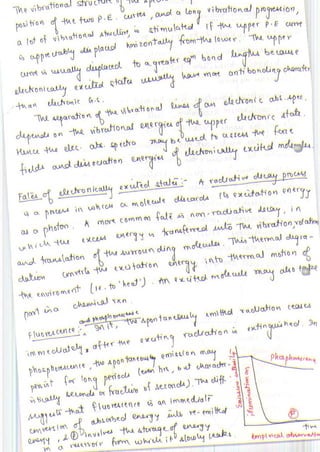 The vibrational structure of the
position of the two P.E. curves, and a long vibrational progression,
a lot of vibrational structure, is stimulated if the upper P.E curve
is appreciably displaced horizontally from the lower. The upper
curve is usually displaced to a greater eqm bond lengths because
electronically excited states usually have more antibonding character
than electronic G.S.
The separation of the vibrational lines of an electronic abs. spec.
depends on the vibrational energies of the upper electronic state.
Hence the elec. abs. spectra may be used to assess the force
fields and dissociation energies of electronically excited molecules.
Fates of electronically excited states:- A radiative decay process
is a process in which a molecule discards its excitation energy
as a photon. A more common fate is non-radiative decay, in
which the excess energy is transferred into the vibration, rotation
and translation of the surrounding molecules. This thermal degra-
dation converts the excitation energy into thermal motion of
the enviroment (i.e. to 'heat'). An excited molecule may also take
part in a chemical rxn.
Fluorescence and phosphorescence :- In it, the spontaneously emitted radiation ceases
immediately after the exciting radiation is extinguished. In
phosphorescence, the spontaneous emission may
persist for long periods (even hrs, but character-
istically seconds or fractions of seconds). The diff
suggests that fluorescence is an immediate
conversion of absorbed energy into re-emitted
energy, & P involves the storage of energy
in a reservoir from which it slowly leaks.
Emission intensity
Illumination on
Phosphorescence
P
time
Empirical observation